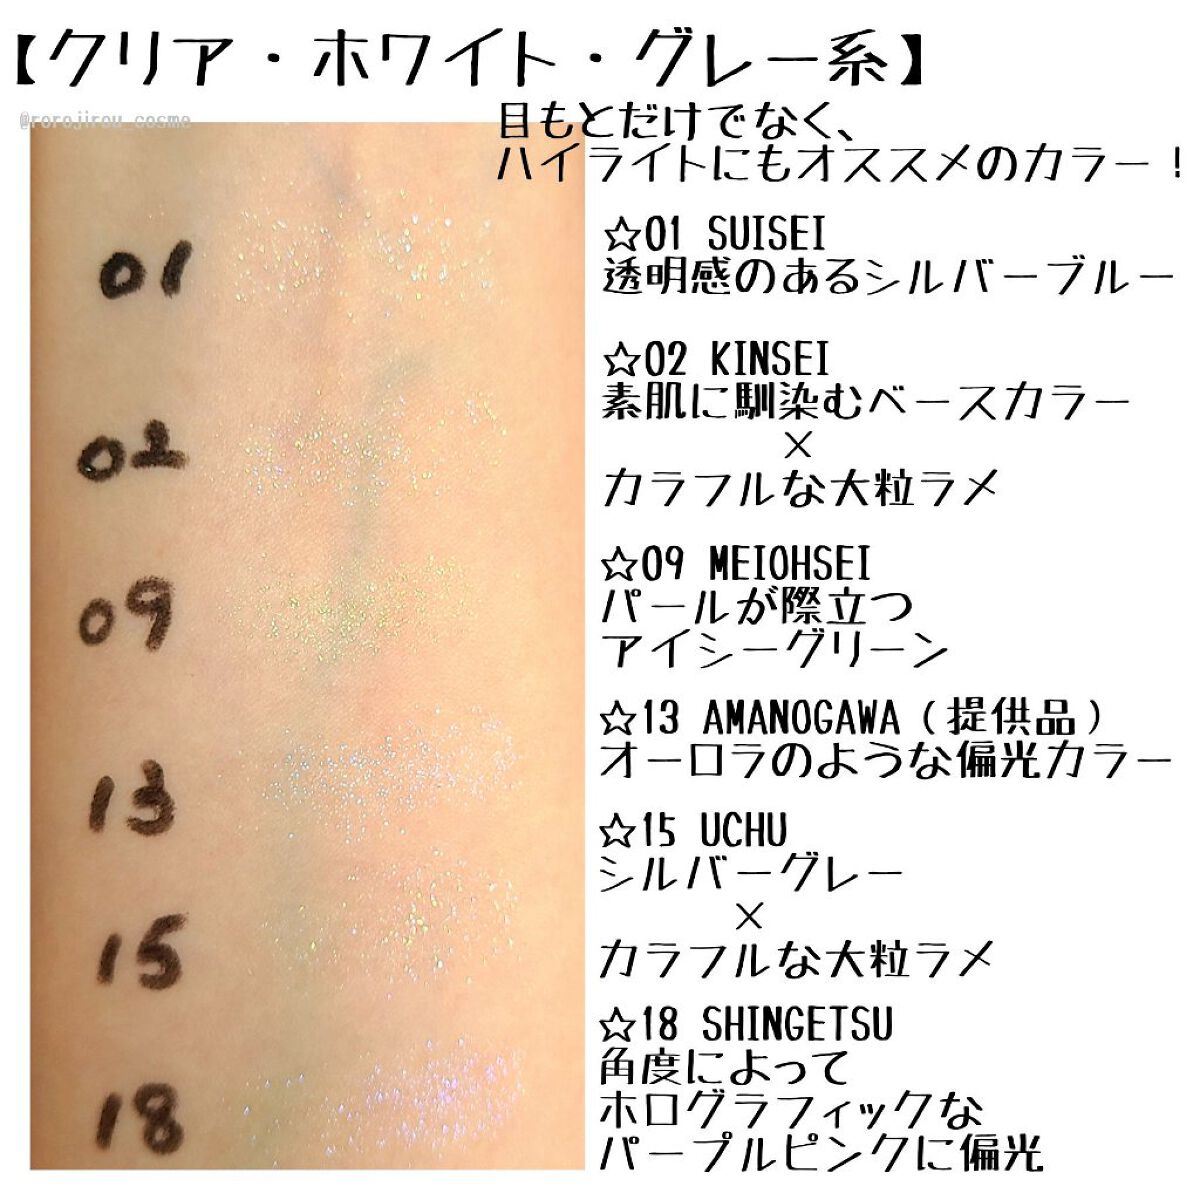 【クリア・ホワイト・グレー系】
@rorojirou_cosme
目もとだけでなく、
ハイライトにもオススメのカラー！
01
☆01 SUISEI
透明感のあるシルバーブルー
02
☆02 KINSEI
素肌に馴染むベースカラー
×
カラフルな大粒ラメ
09
☆09 MEIOHSEI
パールが際立つ
アイシーグリーン
13
☆13 AMANOGAWA（提供品）
オーロラのような偏光カラー
15
☆15 UCHU
シルバーグレー
×
カラフルな大粒ラメ
18
☆18 SHINGETSU
角度によって
ホログラフィックな
パープルピンクに偏光